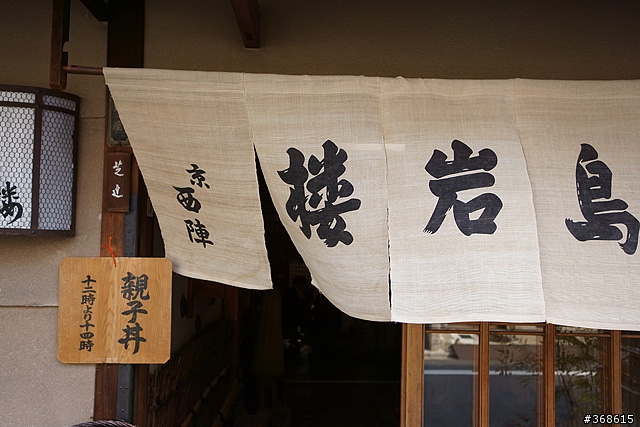 島岩楼
京西陣
親子丼
十二時より十四時
楼
#368615